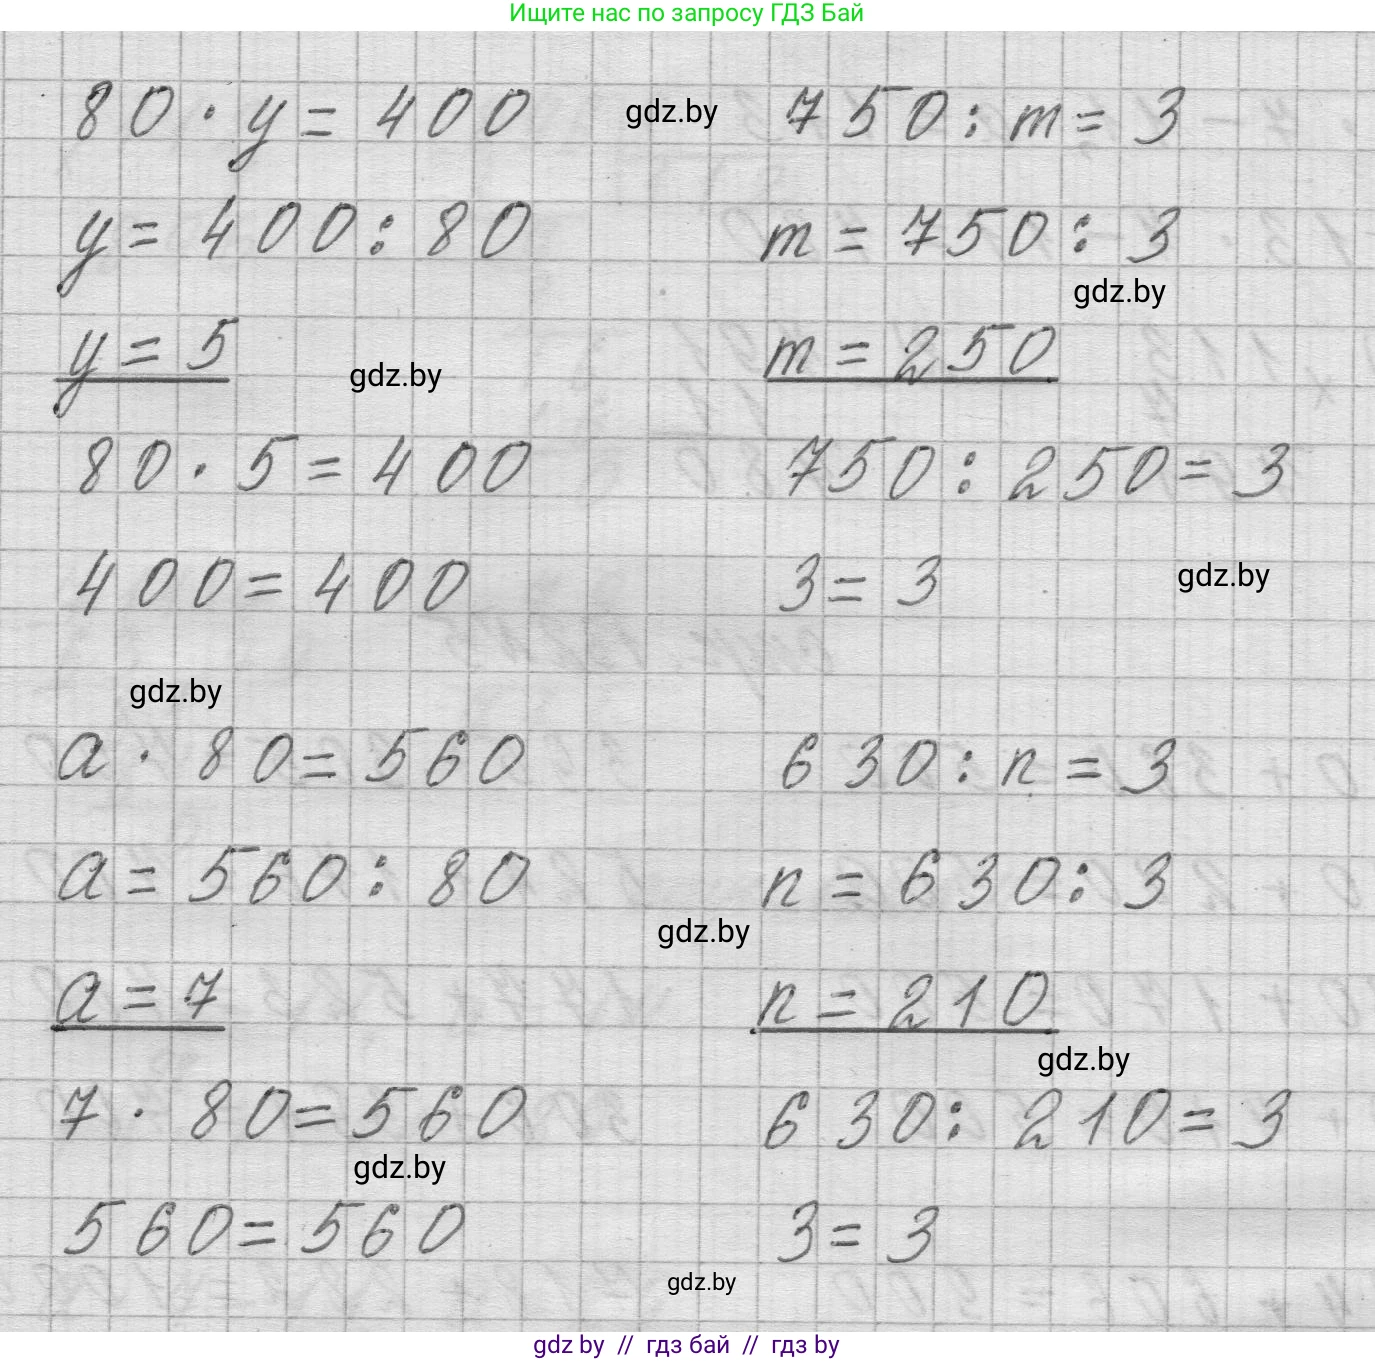 Ищите нас по запросу ГДЗ Бай
80 · y = 400
y = 400 : 80
y = 5
80 · 5 = 400
400 = 400
gdz.by
750 : m = 3
m = 750 : 3
gdz.by
m = 250
gdz.by
750 : 250 = 3
3 = 3
gdz.by
gdz.by
a · 80 = 560
a = 560 : 80
a = 7
7 · 80 = 560
gdz.by
560 = 560
630 : n = 3
n = 630 : 3
gdz.by
n = 210
gdz.by
630 : 210 = 3
3 = 3
gdz.by
gdz by // гдз бай // гдз by